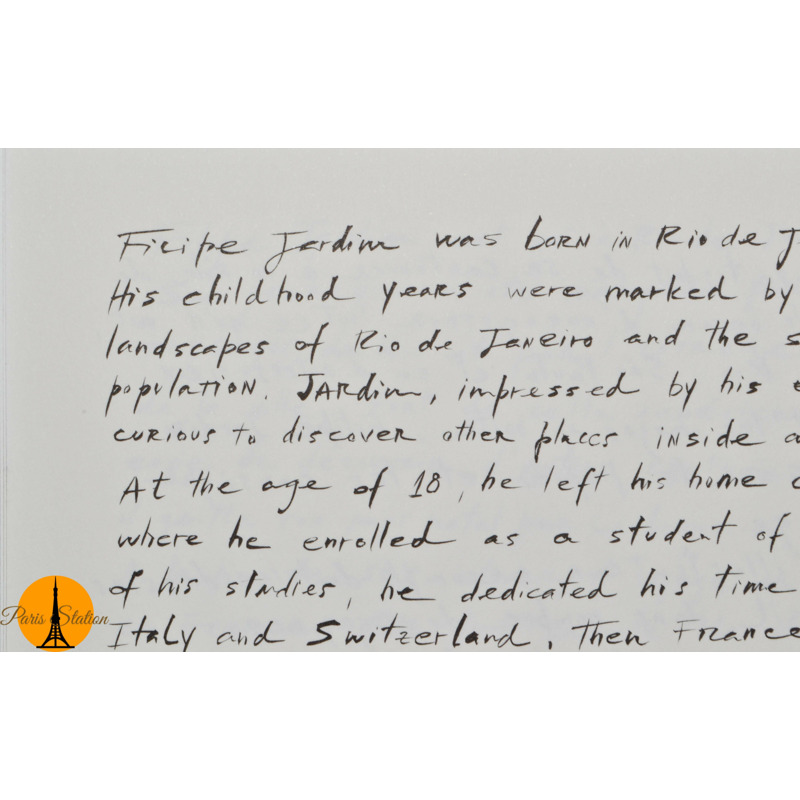 Ficipe Jardim was born in Rio de J
His childhood years were marked by
landscapes of Rio de Janeiro and the s
population. Jardim, impressed by his
curious to discover other places inside a
At the age of 18, he left his home
where he enrolled as a student of
of his studies, he dedicated his time
Italy and Switzerland, then France
Paris Station